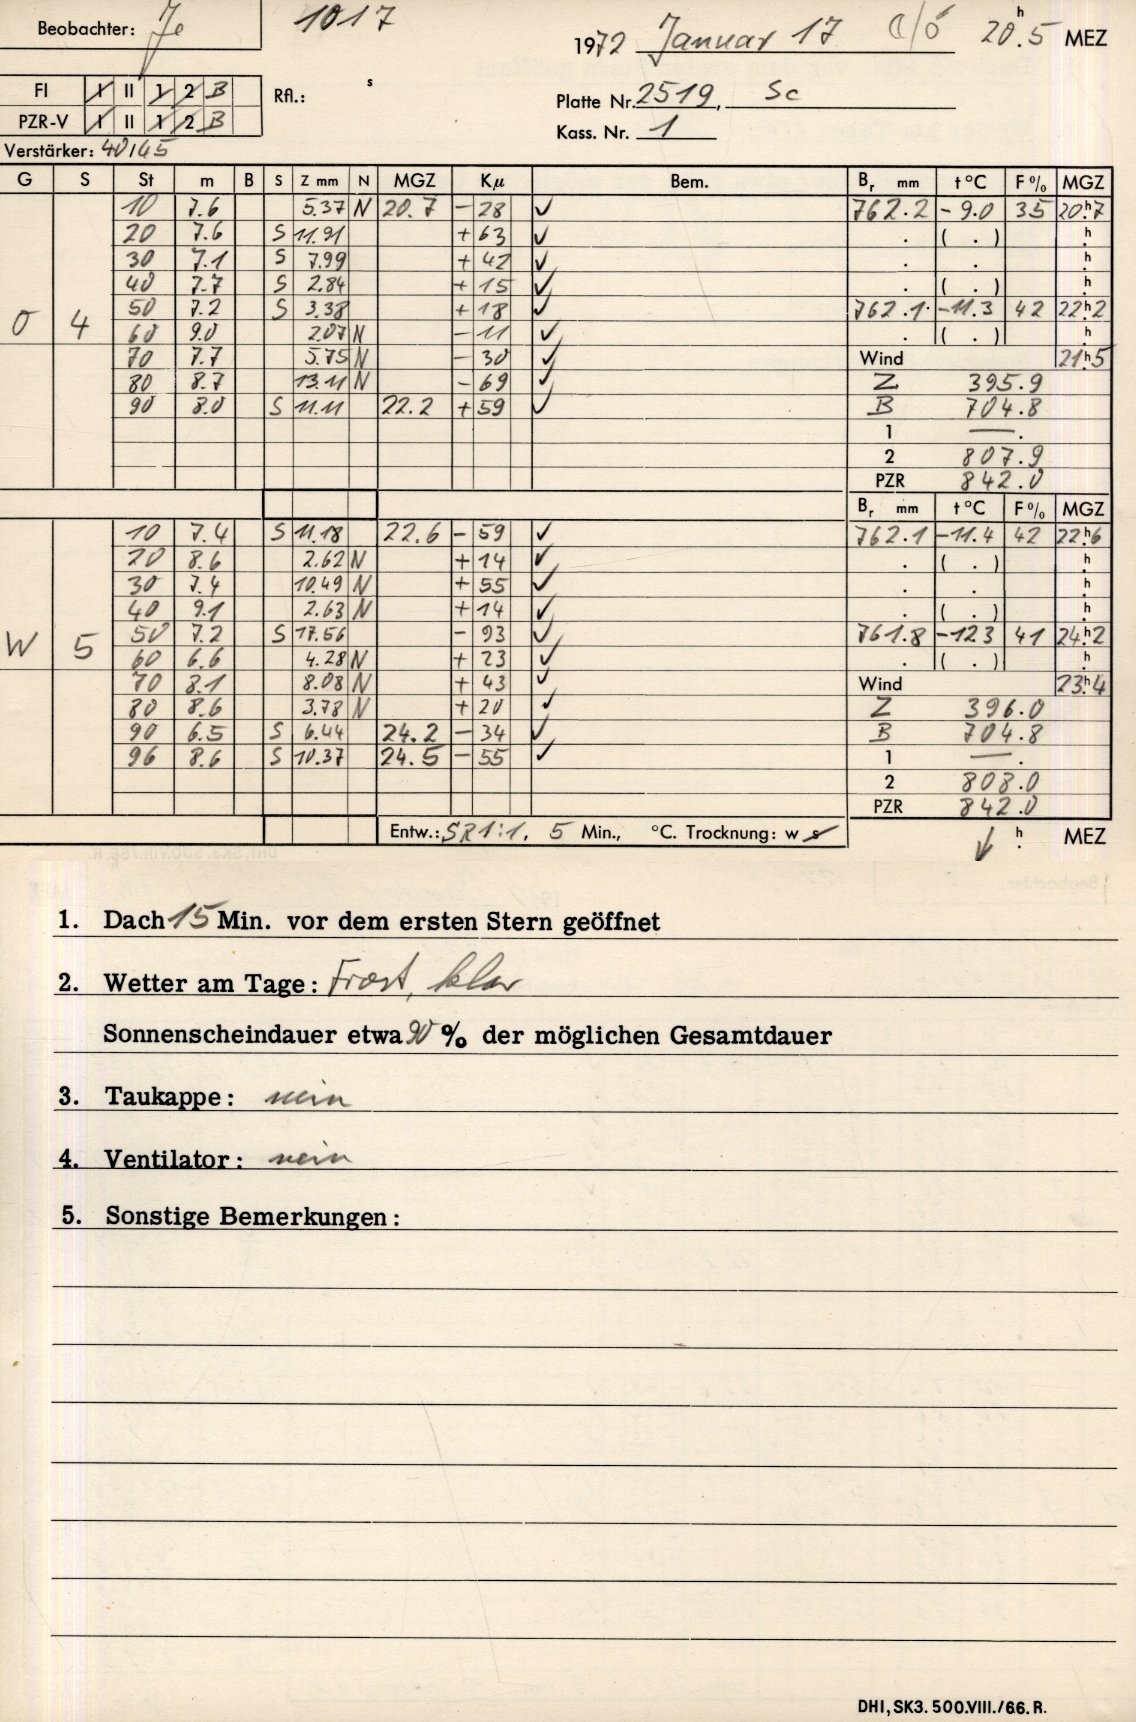 Beobachter: Je 1017
1972 Januar 17 20h.5 MEZ
FI I II 1 2 B Rfl.: s
Platte Nr. 2519, Sc
PZR-V I II 1 2 B
Kass. Nr. 1
Verstärker: 40/45
G S St m B S Z mm N MGZ Kµ Bem. Br mm t °C F % MGZ
10 7.6 5.37 N 20.7 - 28 ✓ 762.2 - 9.0 35 20h.7
20 7.6 S 11.91 + 63 ✓ . ( . ) h.
30 7.1 S 7.99 + 42 ✓ . . h.
40 7.7 S 2.84 + 15 ✓ . ( . ) h.
50 7.2 S 3.38 + 18 ✓ 762.1 -11.3 42 22h.2
O 4 60 9.0 2.07 N - 11 ✓ . ( . ) h.
70 7.7 5.75 N - 30 ✓ Wind 21h.5
80 8.7 13.11 N - 69 ✓ Z 395.9
90 8.0 S 11.11 22.2 + 59 ✓ B 704.8
1 — .
2 807.9
PZR 842.0
Br mm t °C F % MGZ
10 7.4 S 11.18 22.6 - 59 ✓ 762.1 -11.4 42 22h.6
20 8.6 2.62 N + 14 ✓ . ( . ) h.
30 7.4 10.49 N + 55 ✓ . . h.
40 9.1 2.63 N + 14 ✓ . ( . ) h.
W 5 50 7.2 S 17.56 - 93 ✓ 761.8 -12.3 41 24h.2
60 6.6 4.28 N + 23 ✓ . ( . ) h.
70 8.1 8.08 N + 43 ✓ Wind 23h.4
80 8.6 3.78 N + 20 ✓ Z 396.0
90 6.5 S 6.44 24.2 - 34 ✓ B 704.8
96 8.6 S 10.37 24.5 - 55 ✓ 1 — .
2 808.0
PZR 842.0
Entw.: SR 1:1, 5 Min., °C. Trocknung: w s ↓ h. MEZ
1. Dach 15 Min. vor dem ersten Stern geöffnet
2. Wetter am Tage: Frost, klar
Sonnenscheindauer etwa 90 % der möglichen Gesamtdauer
3. Taukappe: nein
4. Ventilator: nein
5. Sonstige Bemerkungen:
DHI, SK3. 500.VIII./66. R.